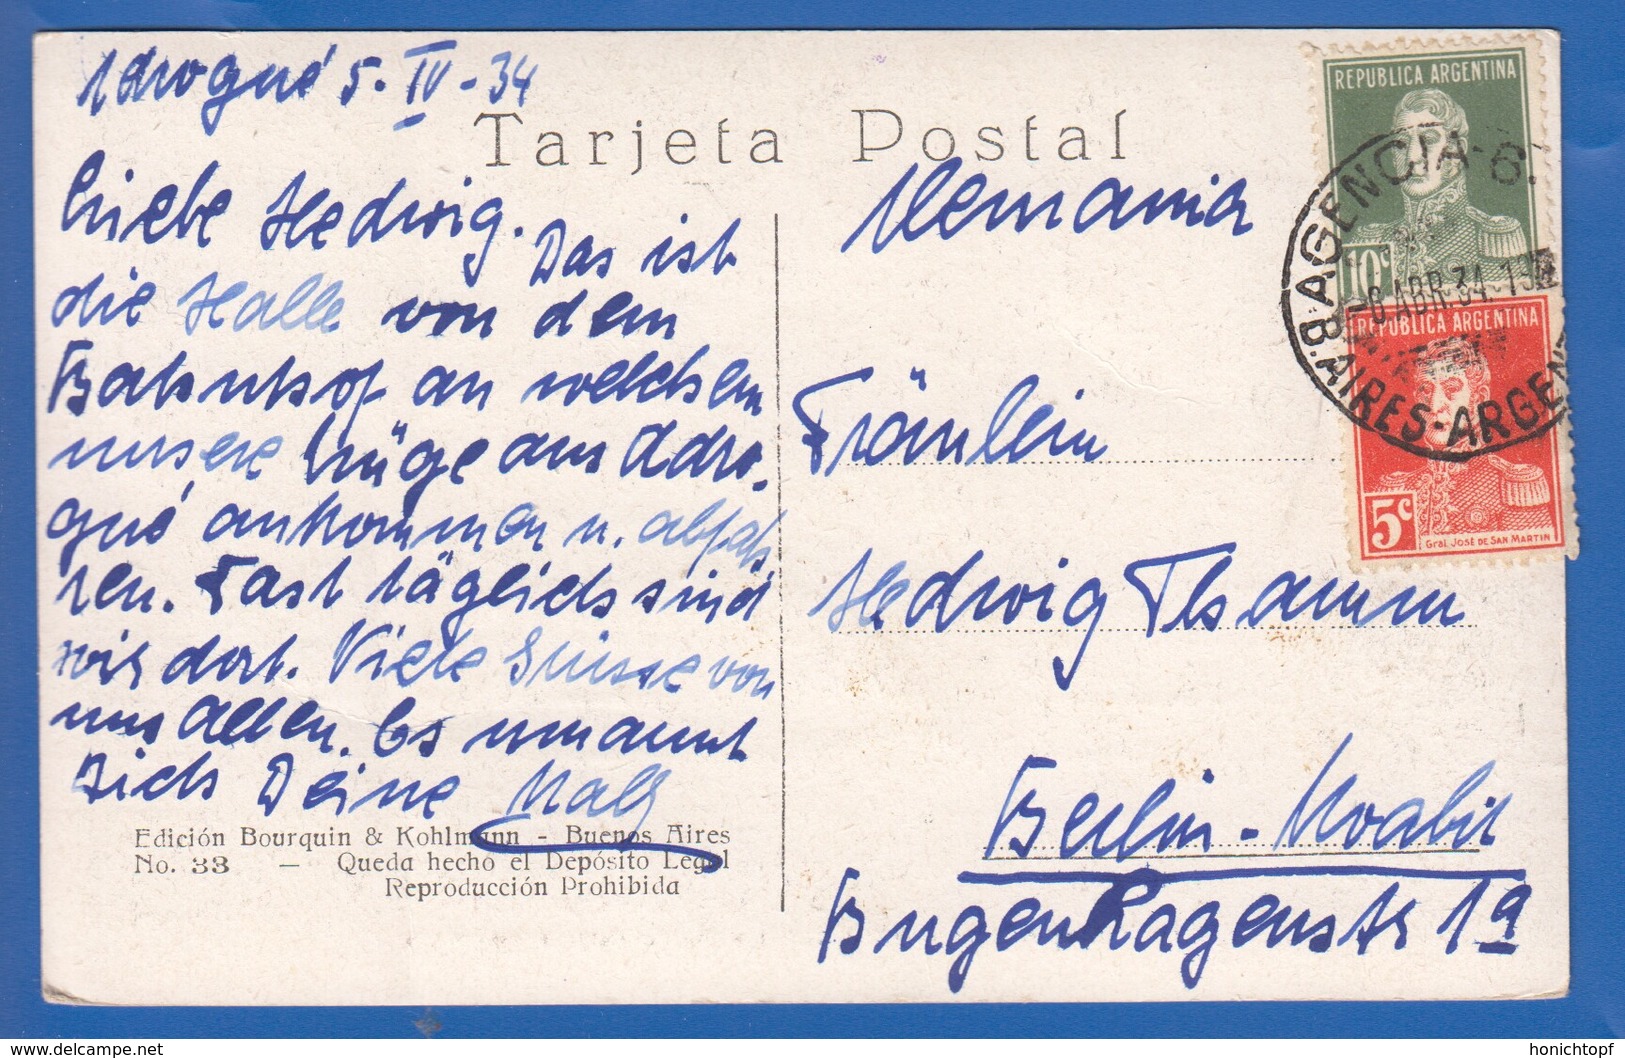 Adrogué 5. IV - 34
Tarjeta Postal
Liebe Hedwig. Das ist
die Halle von dem
Bahnhof an welchem
unsere Züge aus Adro-
gué ankommen u. abfah
ren. Fast täglich sind
wir dort. Viele Grüsse von
uns allen. Es umarmt
Dich Deine
Edición Bourquin & Kohlmann - Buenos Aires
No. 33 — Queda hecho el Depósito Legal
Reproducción Prohibida
Alemania
Fräulein
Hedwig Thamm
Berlin-Moabit
Bugenhagenstr 1a
REPUBLICA ARGENTINA
10c
REPUBLICA ARGENTINA
5c
Gral. José de San Martin
AGENCIA-6.
ABR 34
B.AIRES-ARGEN
www.delcampe.net
honichtopf